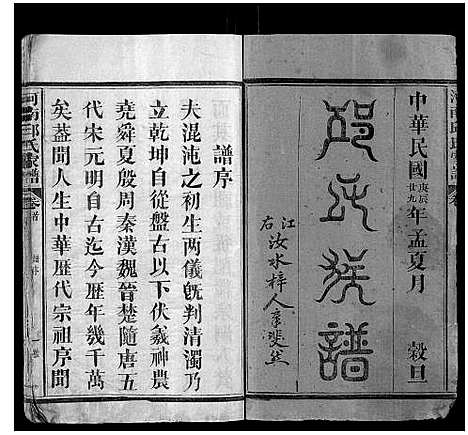 中華民國庚辰廿九年孟夏月 穀旦
邱氏族譜
江右
汝水梓人
譜序
夫混沌之初生两儀旣判清濁乃
立乾坤自從盤古以下伏羲神農
堯舜夏殷周秦漢魏晉楚隨唐五
代宋元明自古迄今歴年幾千萬
矣葢聞人生中華歴代宗祖序聞
河南邱氏家譜 卷首